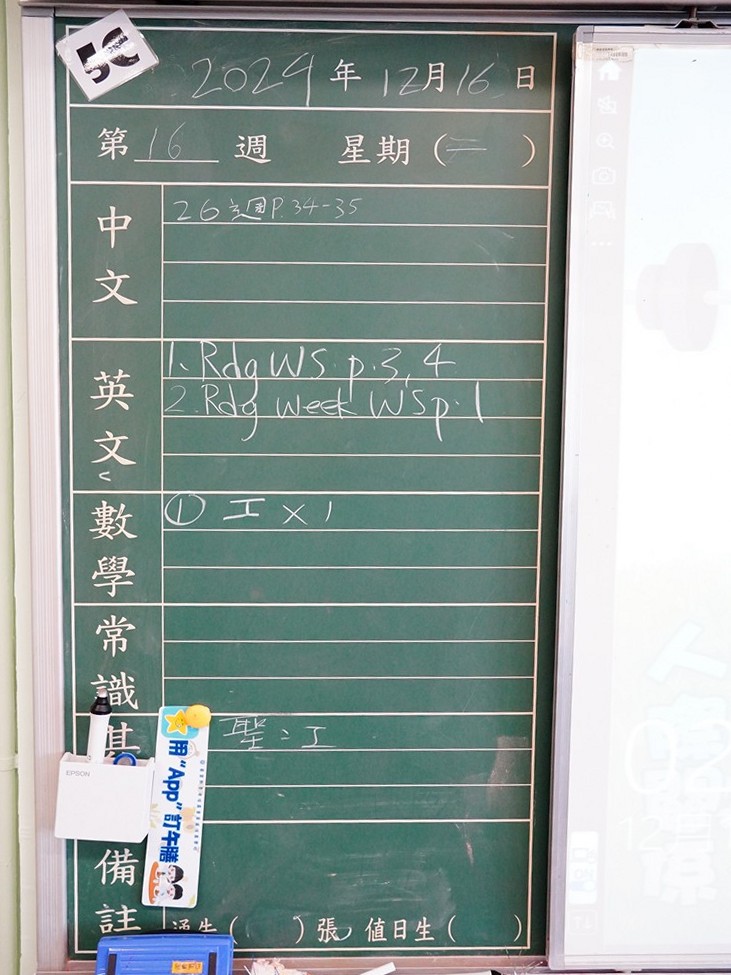 5C
2024年12月16日
第16週 星期(二)
中文
26週P.34-35
英文
1. Rdg WS. p.3,4
2. Rdg week WS p.1
數學
① 工 x 1
常識
聖:工
EPSON
用"App"訂午膳
備註
通告( )張 值日生( )